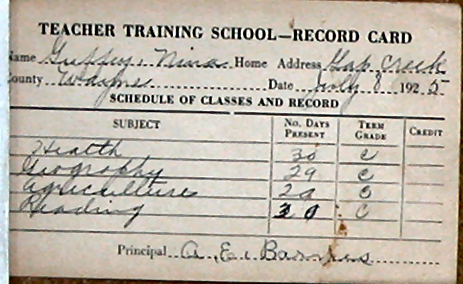 TEACHER TRAINING SCHOOL—RECORD CARD
Name Guffey, Nina Home Address Gap Creek
County Wayne Date July 8 1925
SCHEDULE OF CLASSES AND RECORD
SUBJECT No. DAYS PRESENT TERM GRADE CREDIT
Health 30 C
Geography 29 C
Agriculture 20
Reading 30 C
Principal A. E.